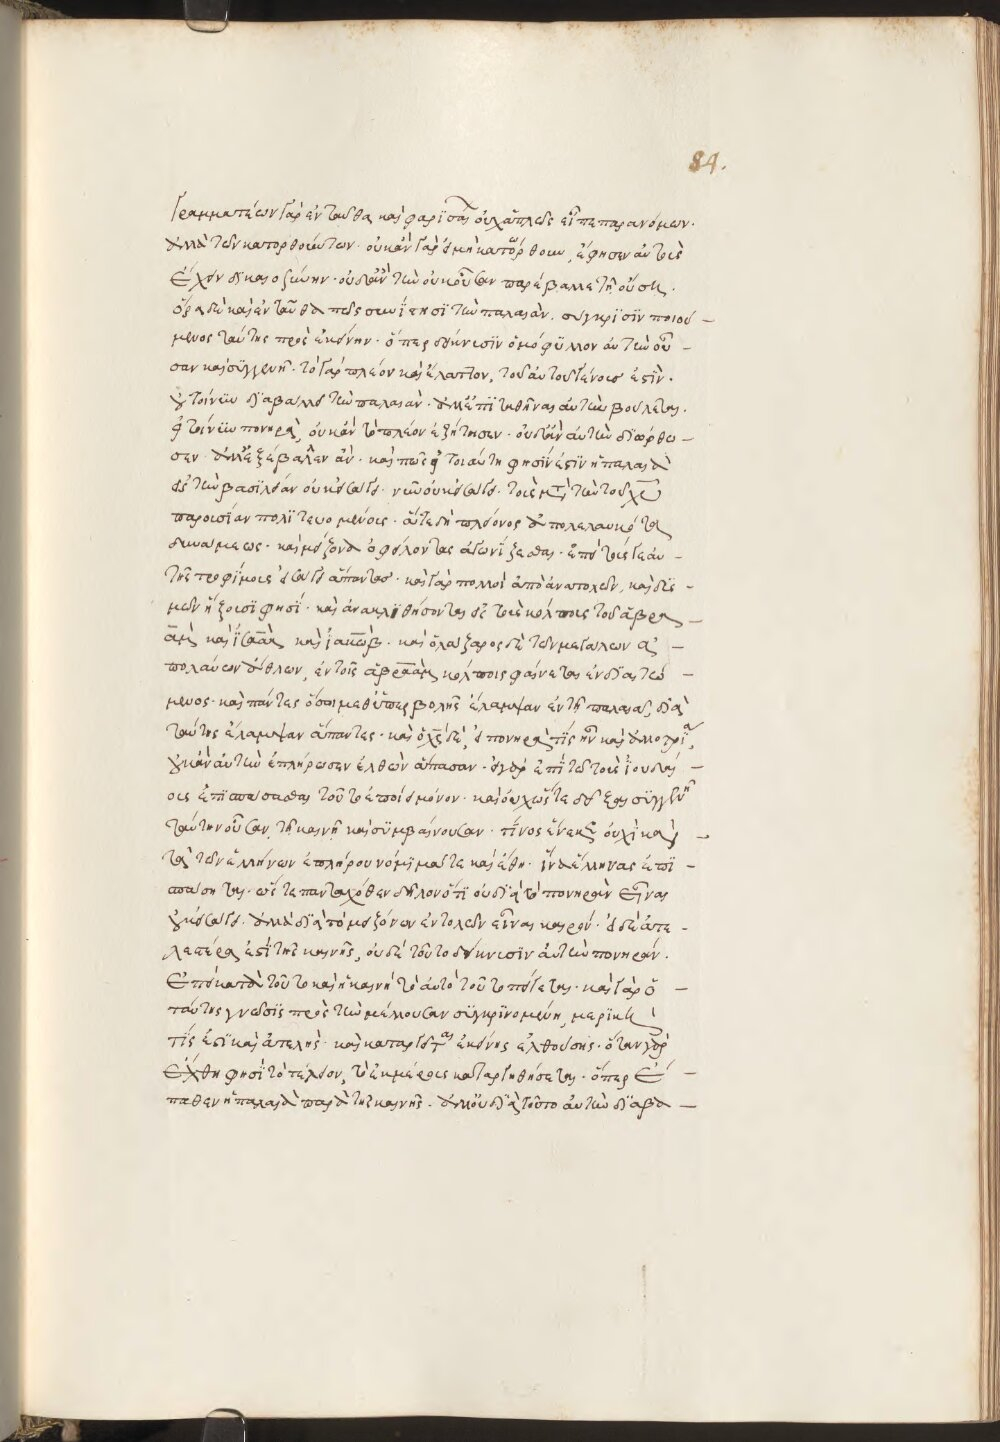 84.
Γραμματέων γὰρ ἐνταῦθα καὶ φαρισαίων οὐχ ἁπλῶς εἶπε παρανόμων.
ἀλλὰ τῶν κατορθούντων. οὐκ ἂν γὰρ εἰ μὴ κατώρθουν, ἔφησεν αὐτοὺς
ἔχειν δικαιοσύνην. οὐδ' ἂν τὴν οὐκ οὖσαν παρέβαλλε τῇ οὔσῃ.
ὅρα δὲ καὶ ἐνταῦθα πῶς συνίστησι τὴν παλαιὰν. σύγκρισιν ποιού –
μενος ταύτης πρὸς ἐκείνην. ὅπερ δείκνυσιν ὁμόφυλλον αὐτὴν οὖ –
σαν καὶ συγγενῆ. τὸ γὰρ πλέον καὶ ἔλαττον, τοῦ αὐτοῦ γένους ἐστὶν.
οὐ τοίνυν διαβάλλει τὴν παλαιὰν. ἀλλ' ἐπιταθῆναι αὐτὴν βούλεται.
εἰ τοίνυν πονηρὰ, οὐκ ἂν τὸ πλέον ἐζήτησεν. οὐδ' ἂν αὐτὴν διώρθω –
σεν. ἀλλ' ἐξέβαλεν ἂν. καὶ πῶς εἰ τοιαύτη φησίν ἐστιν ἡ παλαιὰ
εἰς τὴν βασιλείαν οὐκ εἰσάγει. νῦν οὐκ εἰσάγει. τοὺς μετὰ τὴν τοῦ χυ
παρουσίαν πολιτευομένους. ἅτε δὴ πλείονος ἀπολελαυκότας
δυνάμεως. καὶ μείζονα ὀφείλοντας ἀγωνίζεσθαι. ἐπεὶ τούς γε αὐ –
τῆς τροφίμους εἰσάγει ἅπαντας. καὶ γὰρ πολλοὶ ἀπὸ ἀνατολῶν, καὶ δυ –
μῶν ἥξουσι φησί. καὶ ἀνακλιθήσονται εἰς τοὺς κόλπους τοῦ ἀβρα –
ὰμ καὶ ἰσαὰκ καὶ ἰακὼβ. καὶ ὁ λάζαρος δὲ τῶν μεγάλων ἀ –
πολαύων ἄθλων, ἐν τοῖς ἀβραὰμ κόλποις φαίνεται ἐνδιαιτώ –
μενος. καὶ πάντες ὅσοι μεθ' ὑπερβολῆς ἔλαμψαν ἐν τῇ παλαιᾷ, διὰ
ταύτης ἔλαμψαν ἅπαντες. καὶ ὁ χς δὲ, εἰ πονηρά τις ἦν καὶ ἀλλοτρία,
οὐκ ἂν αὐτὴν ἐπλήρωσεν ἐλθὼν ἅπασαν. εἰ γὰρ ἐπὶ τῷ τοὺς ἰουδαί –
ους ἐπισπάσασθαι τοῦτο ἐποίει μόνον. καὶ οὐχ ὥστε δεῖξαι συγγενῆ
ταύτην οὖσαν τῇ καινῇ καὶ συμβαίνουσαν. τίνος ἕνεκεν οὐχὶ καὶ –
τὰ τῶν ἑλλήνων ἐπλήρου νόμιμά τε καὶ ἔθη. ἵνα ἕλληνας ἐπι –
σπάσηται. ὥστε πανταχόθεν δῆλον ὅτι οὐ διὰ τὸ πονηρὰν εἶναι
οὐκ εἰσάγει. ἀλλὰ διὰ τὸ μειζόνων ἐντολῶν εἶναι καιρόν. εἰ δὲ ἀτε –
λεστέρα ἐστὶ τῆς καινῆς, οὐδὲ τοῦτο δείκνυσιν αὐτὴν πονηρὰν.
Ἐπεὶ κατὰ τοῦτο καὶ ἡ καινὴ τὸ αὐτὸ τοῦτο πείσεται. καὶ γὰρ ἡ –
ταύτης γνῶσις πρὸς τὴν μέλλουσαν συγκρινομένη, μερική
τίς ἐστι καὶ ἀτελὴς. καὶ καταργεῖται ἐκείνης ἐλθούσης. ὅταν γὰρ
ἔλθῃ φησὶ τὸ τέλειον, τὸ ἐκ μέρους καταργηθήσεται. ὅπερ ἔ –
παθεν ἡ παλαιὰ παρὰ τῆς καινῆς. ἀλλ' οὐ διὰ τοῦτο αὐτὴν διαβα –